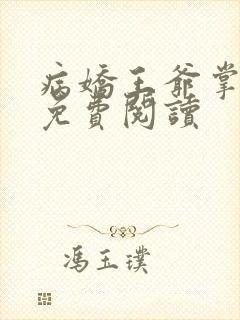 病嬌王爺掌
免費閱讀
馮玉璞